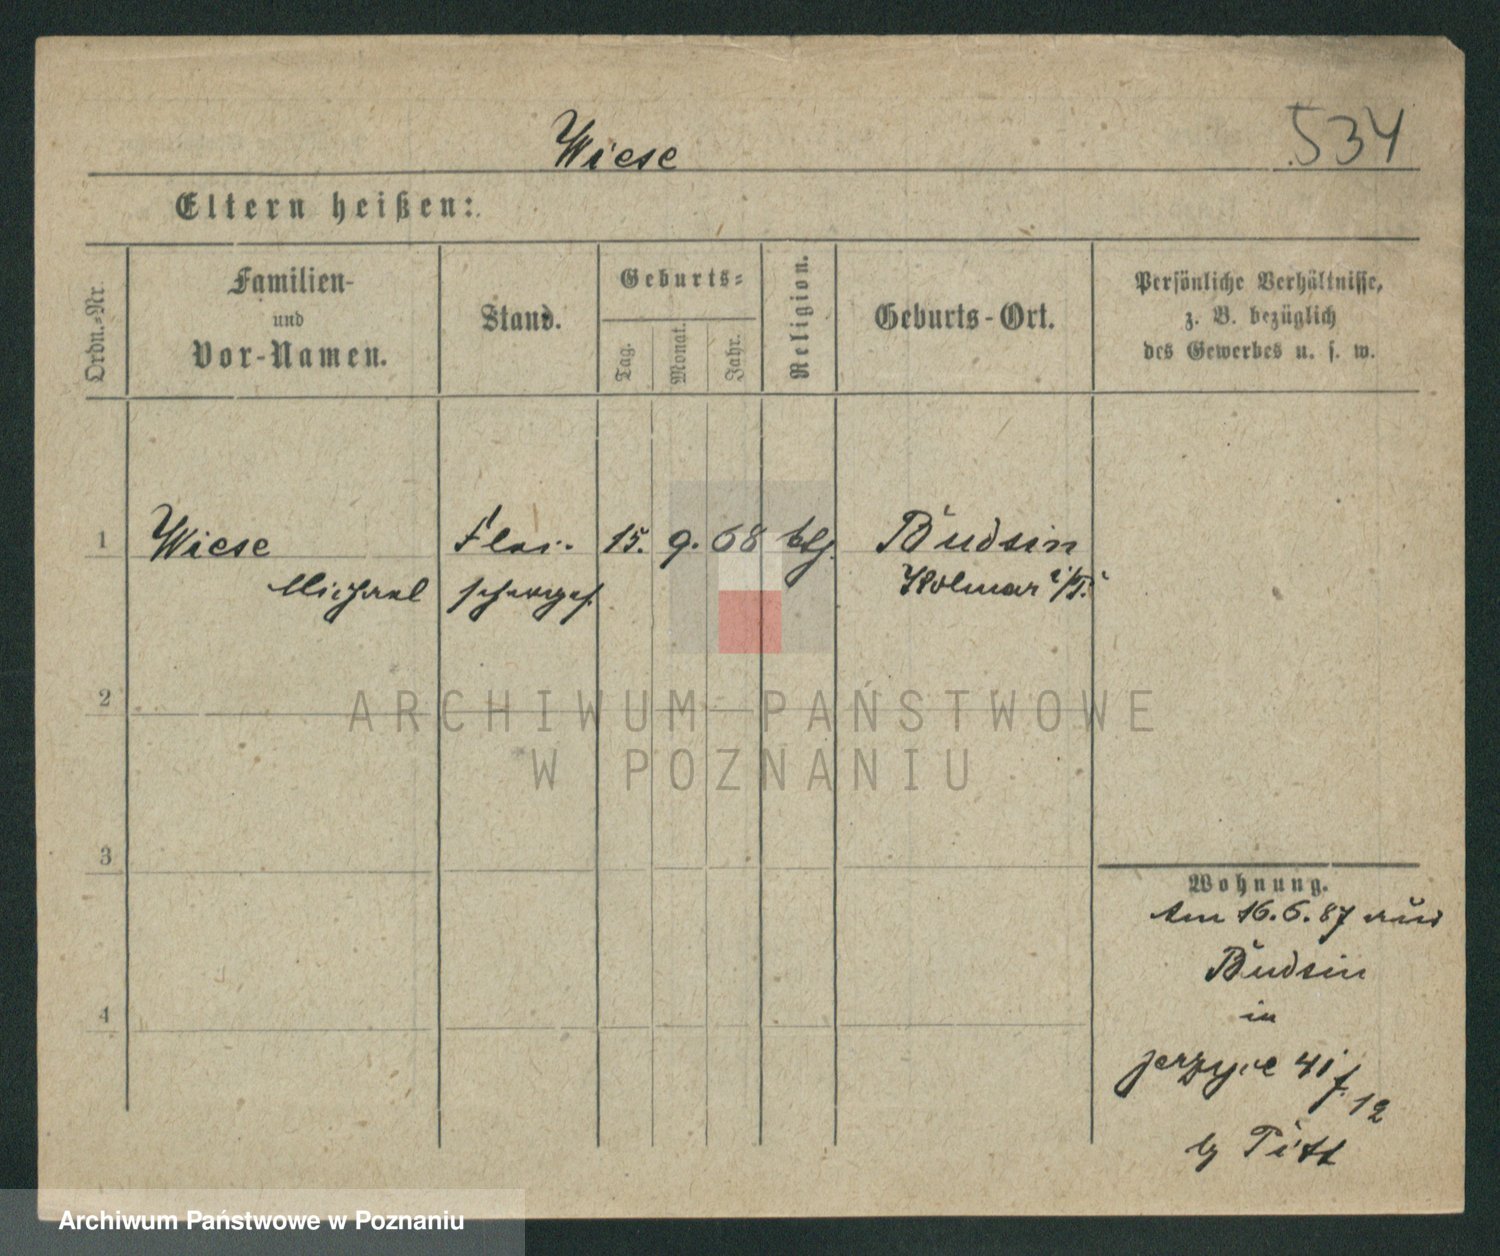 Wiese
534
Eltern heißen:
Ordn.-Nr.
Familien-
und
Vor-Namen.
Stand.
Geburts-
Tag.
Monat.
Jahr.
Religion.
Geburts-Ort.
Persönliche Verhältnisse,
z. B. bezüglich
des Gewerbes u. s. w.
1
Wiese Flei- 15. 9. 68 Budsin
Michael Kolmar i/P.
2
ARCHIWUM PAŃSTWOWE
W POZNANIU
3
4
Wohnung.
Am 16. 6. 87 aus
Budsin
in
Jerzyce 41
12
Archiwum Państwowe w Poznaniu